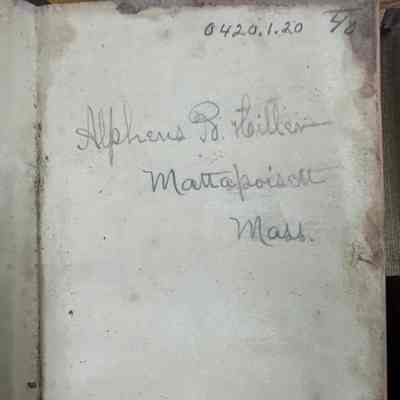 0420.1.20
Alpheus B. Hiller
Mattapoisett
Mass.